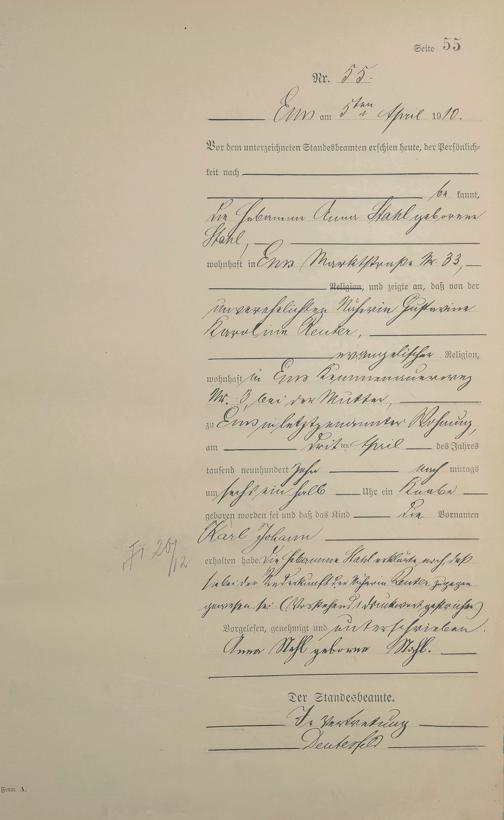 Seite 55
Nr. 55.
Ems am 5ten April 1910.
Vor dem unterzeichneten Standesbeamten erschien heute, der Persönlich-
keit nach
be kannt,
die Hebamme Anna Stahl geborene
Stahl,
wohnhaft in Ems Marktstraße Nr. 33,
Religion, und zeigte an, daß von der
unverehelichten Näherin
Karoline Reuter,
evangelischer Religion,
wohnhaft in Ems
Nr. 3, bei der Mutter,
zu Ems in letztgenannter Wohnung,
am dritten April des Jahres
tausend neunhundert zehn nach mittags
um sechs ein halb Uhr ein Knabe
geboren worden sei und daß das Kind die Vornamen
Karl Johann
erhalten habe. Die Hebamme Stahl erklärte noch, daß
sie bei der Niederkunft der Näherin Reuter zugegen
gewesen sei. (Vorstehend 1 Druckwort gestrichen)
Vorgelesen, genehmigt und unterschrieben.
Anna Stahl geborne Stahl.
Der Standesbeamte.
In Vertretung
20/12
Form A.